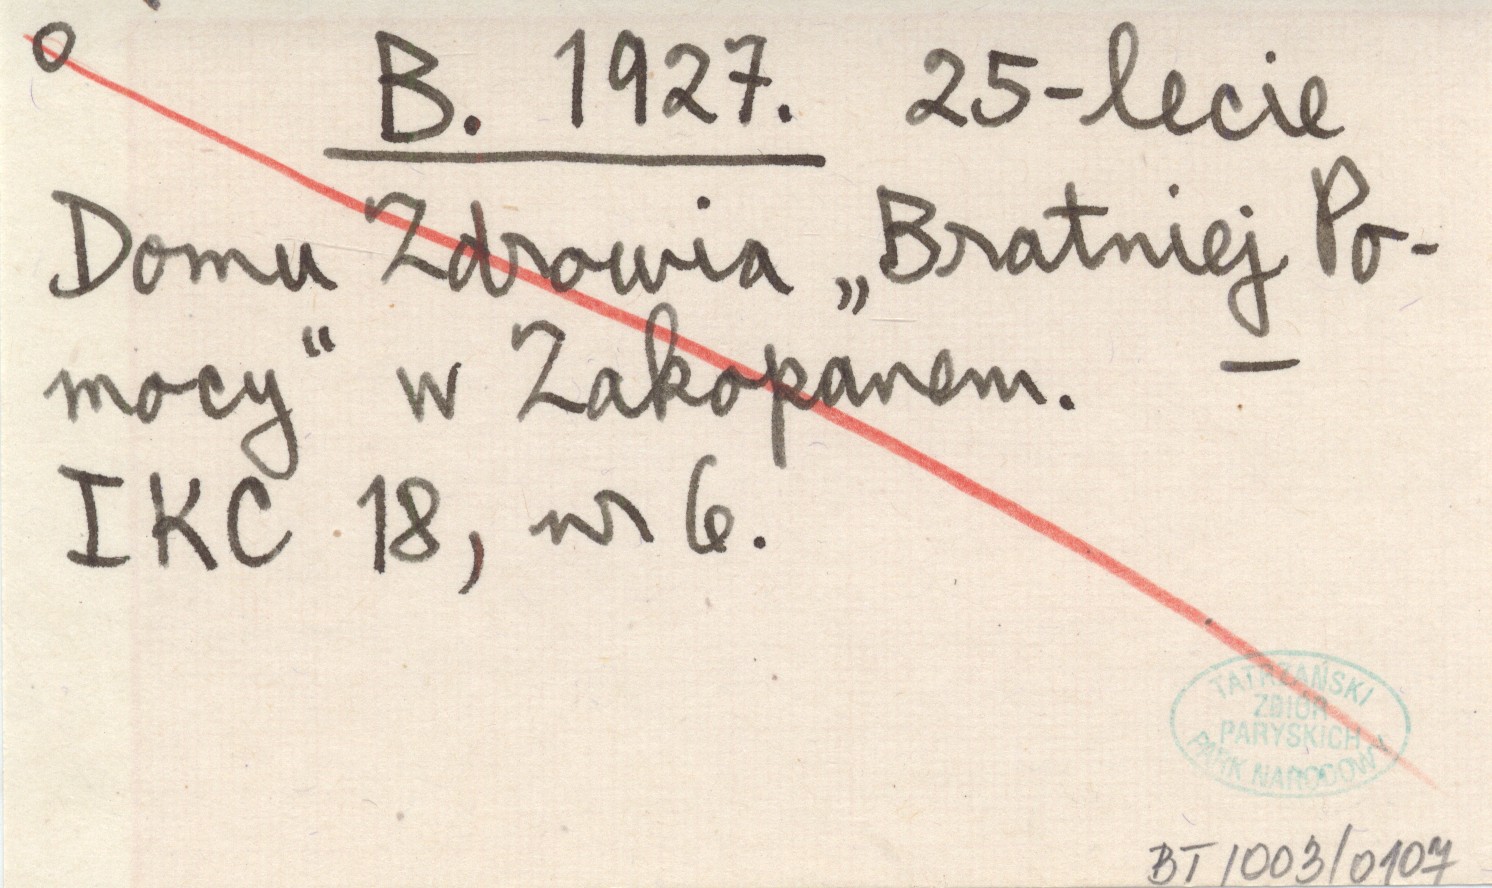 O B. 1927. 25-lecie
Domu Zdrowia „Bratniej Po-
mocy“ w Zakopanem.
IKC 18, nr 6.
TATRZAŃSKI
ZBIÓR
PARYSKICH
PARK NARODOWY
BT 1003/0107